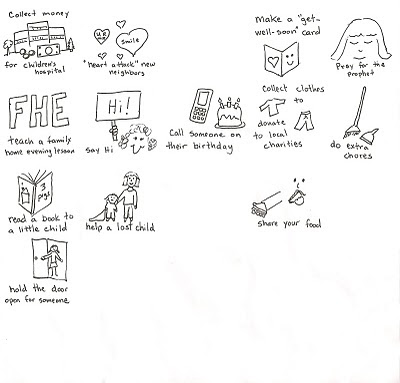 Collect money
for children's
hospital
U R
smile
"heart attack" new
neighbors
make a "get-
well-soon" card
Pray for the
prophet
FHE
teach a family
home evening lesson
Hi!
say Hi
Call someone on
their birthday
Collect clothes
to
donate
to local
charities
do extra
chores
3
pigs
read a book to
a little child
help a lost child
share your food
hold the door
open for someone